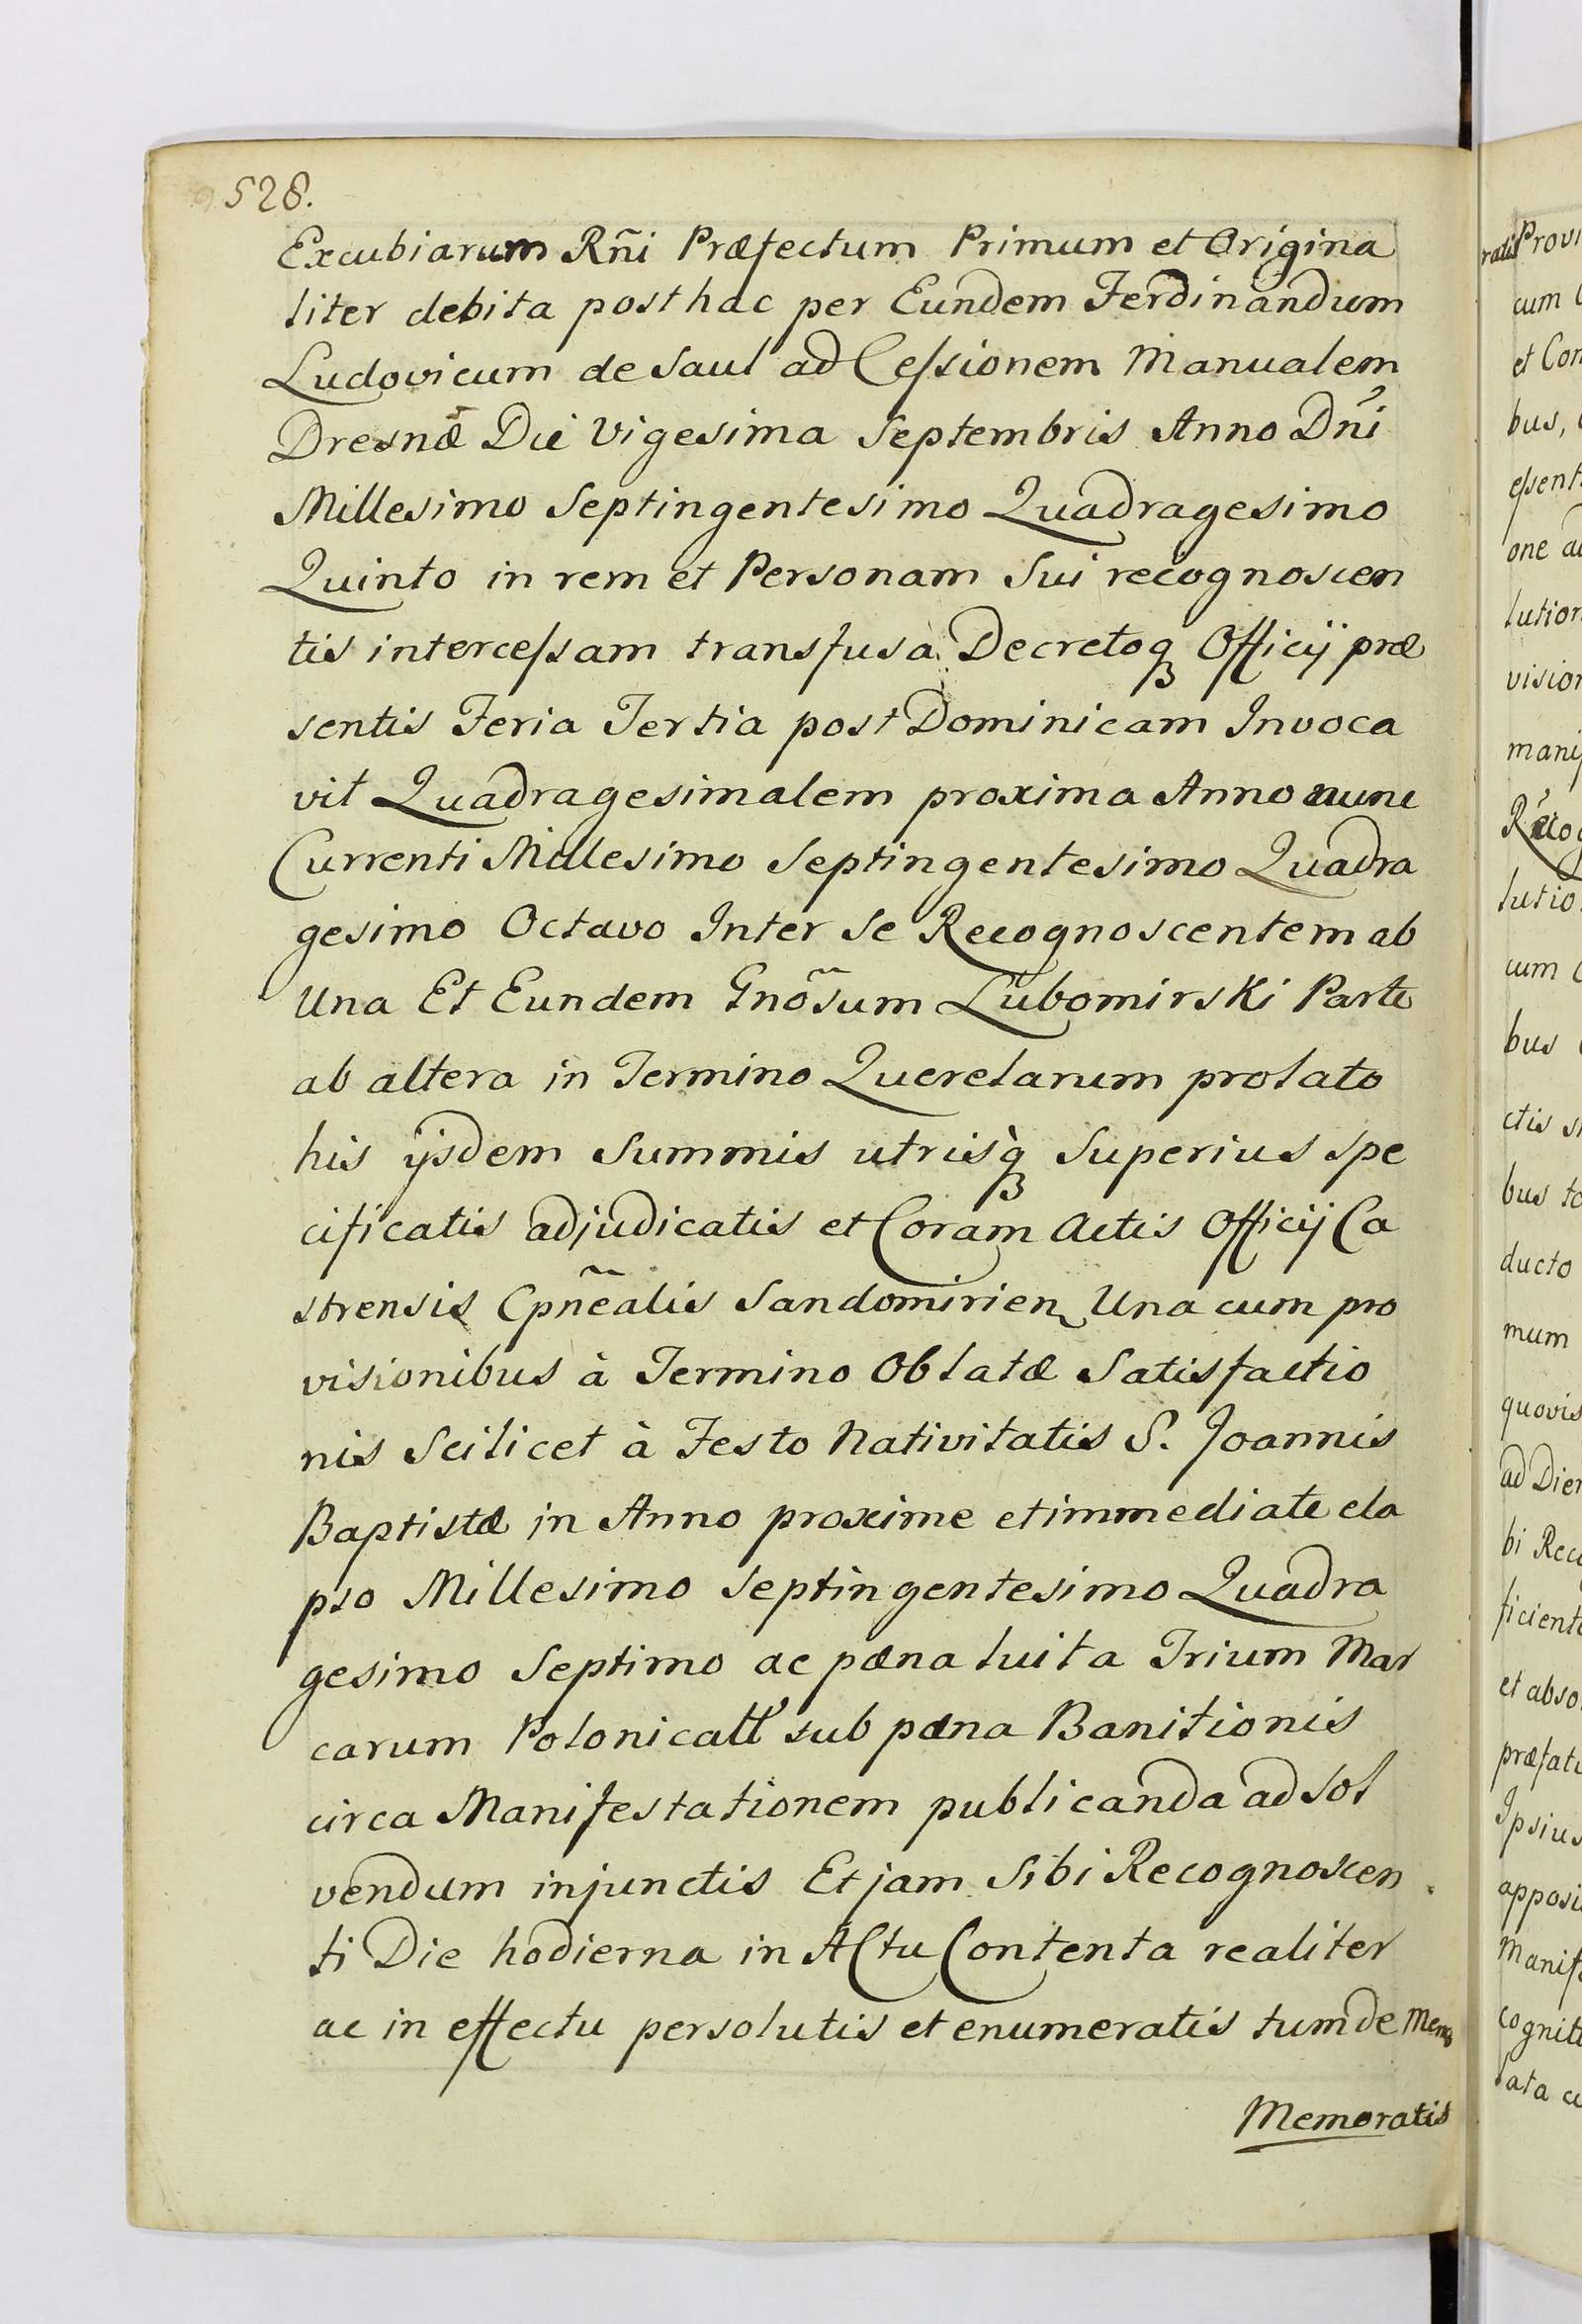 528.
Excubiarum Rñi Præfectum Primum et Origina
liter debita post hac per Eundem Ferdinandum
Ludovicum de Saul ad Ceſsionem Manualem
Dresnæ Die Vigesima Septembris Anno Dñi
Millesimo Septingentesimo Quadragesimo
Quinto in rem et Personam Sui recognoscen
tis interceſsam transfusa Decretoq Officij præ
sentis Feria Tertia post Dominicam Invoca
vit Quadragesimalem proxima Anno nunc
Currenti Millesimo Septingentesimo Quadra
gesimo Octavo Inter Se Recognoscentem ab
Una Et Eundem Gnõsum Lubomirski Parte
ab altera in Termino Querelarum prolato
his ijsdem Summis utrisq̀ Superius spe
cificatis adjudicatis et Coram Actis Officij Ca
strensis Cpñealis Sandomirien Una cum pro
visionibus à Termino Oblatæ Satisfactio
nis Scilicet à Festo Nativitatis S. Joannis
Baptistæ in Anno proxime et immediate ela
pso Millesimo Septingentesimo Quadra
gesimo Septimo ac pæna luita Trium Mar
carum Polonicall' sub pæna Banitionis
circa Manifestationem publicanda ad sol
vendum injunctis Et jam Sibi Recognoscen
ti Die hodierna in ACtu Contenta realiter
ac in effectu persolutis et enumeratis tum de Mem
Memoratis
Provi
cum
et Con
bus,
eſsent
one
lution
vision
manif
Recog
lutio
cum
bus
ctis
bus
ducto
mum
quovis
ad Diem
bi
ficiente
et abso
præfat
Ipsius
Manif
cognit